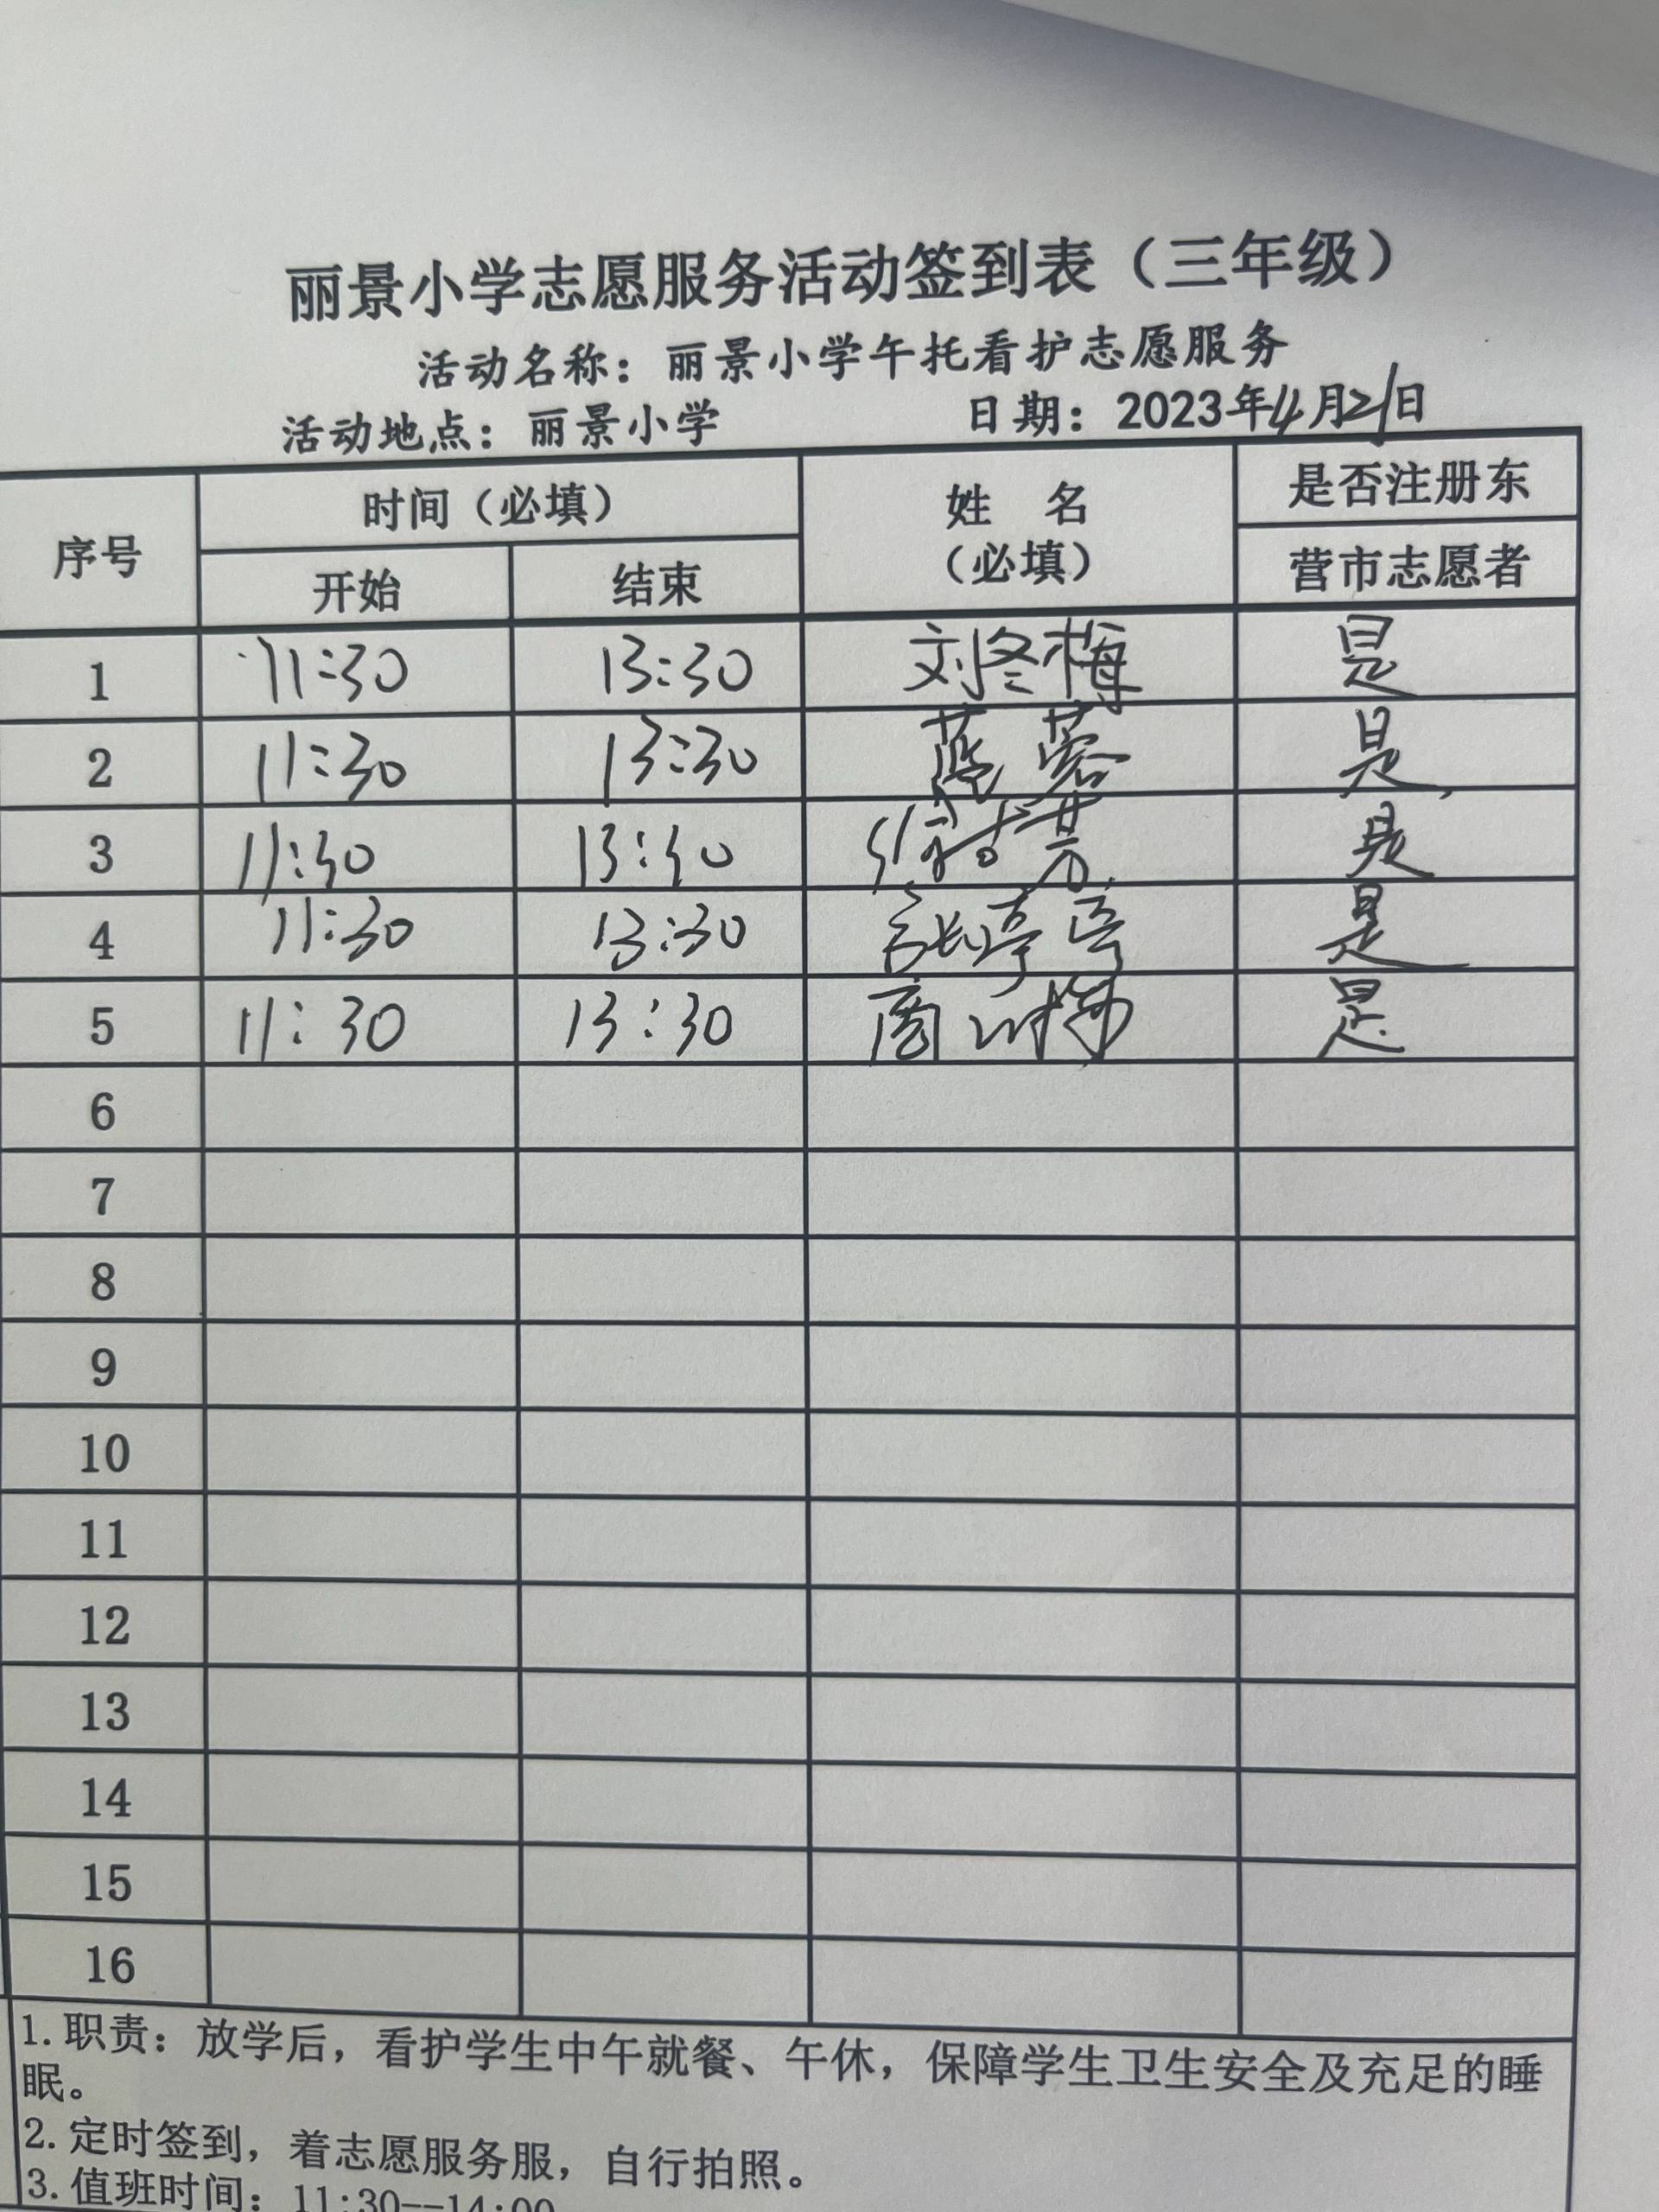 丽景小学志愿服务活动签到表（三年级）
活动名称：丽景小学午托看护志愿服务
活动地点：丽景小学 日期：2023年4月21日
序号 时间（必填） 姓 名（必填） 是否注册东营市志愿者
开始 结束
1 11:30 13:30 刘冬梅 是
2 11:30 13:30 蓉 是
3 11:30 13:30 芳 是
4 11:30 13:30 张亭亭 是
5 11:30 13:30 周 是
6
7
8
9
10
11
12
13
14
15
16
1.职责：放学后，看护学生中午就餐、午休，保障学生卫生安全及充足的睡
眠。
2.定时签到，着志愿服务服，自行拍照。
3.值班时间：11:30--14:00